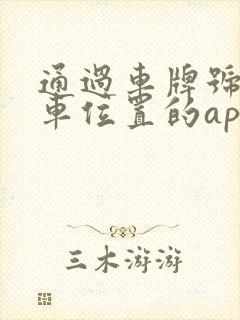 通過車牌號
車位置的ap
三木游游